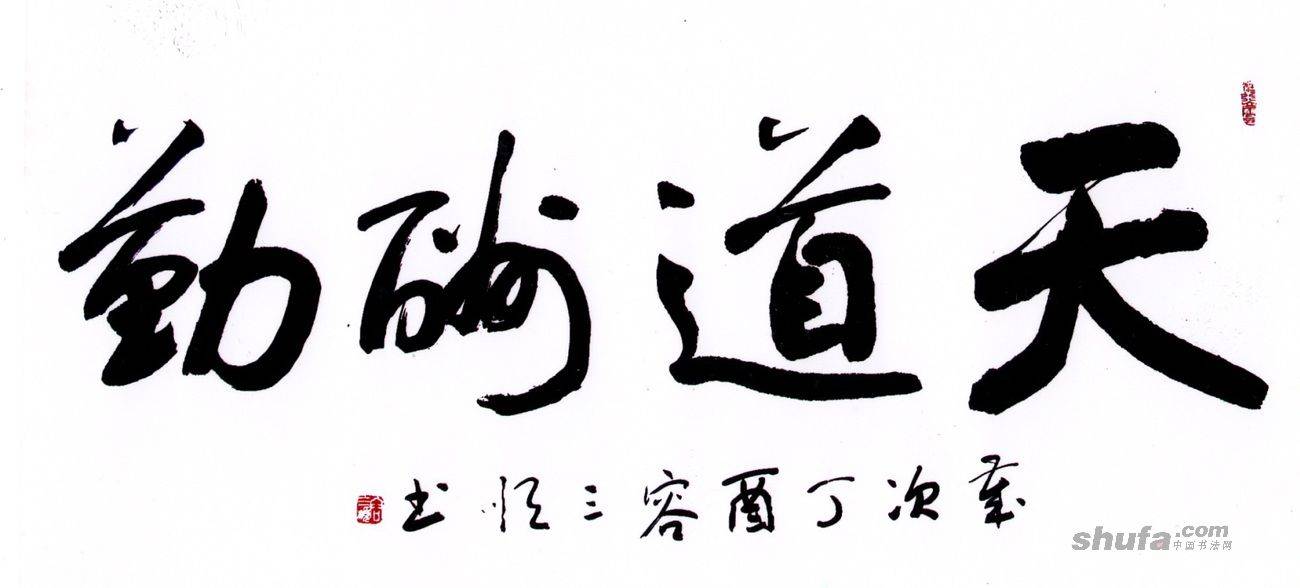 天道酬勤
岁次丁酉容三恒书
shufa.com
中国书法网